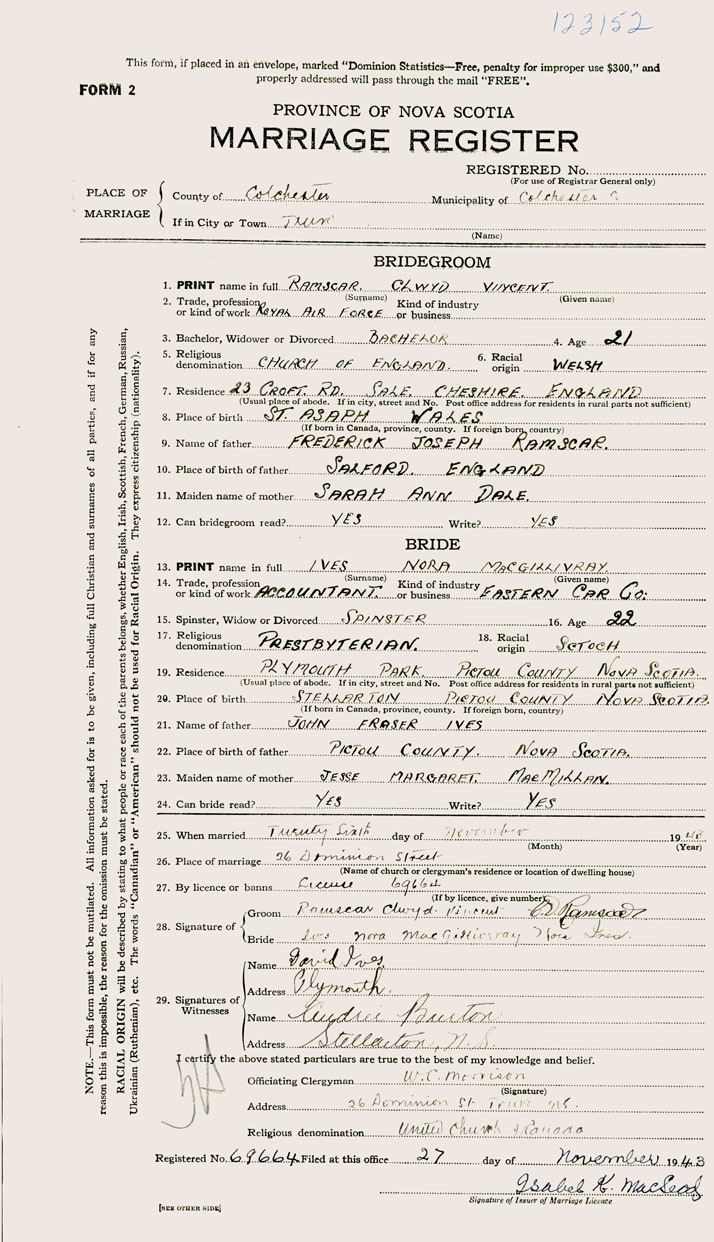 123152
This form, if placed in an envelope, marked "Dominion Statistics—Free, penalty for improper use $300," and
properly addressed will pass through the mail "FREE".
FORM 2
PROVINCE OF NOVA SCOTIA
MARRIAGE REGISTER
REGISTERED No.
(For use of Registrar General only)
PLACE OF MARRIAGE
County of Colchester Municipality of Colchester
If in City or Town Truro
(Name)
NOTE.—This form must not be mutilated. All information asked for is to be given, including full Christian and surnames of all parties, and if for any
reason this is impossible, the reason for the omission must be stated.
RACIAL ORIGIN will be described by stating to what people or race each of the parents belongs, whether English, Irish, Scottish, French, German, Russian,
Ukrainian (Ruthenian), etc. The words "Canadian" or "American" should not be used for Racial Origin. They express citizenship (nationality).
BRIDEGROOM
1. PRINT name in full RAMSCAR. CLWYD VINCENT.
(Surname) (Given name)
2. Trade, profession or kind of work ROYAL AIR FORCE Kind of industry or business
3. Bachelor, Widower or Divorced BACHELOR 4. Age 21
5. Religious denomination CHURCH OF ENGLAND. 6. Racial origin WELSH
7. Residence 23 CROFT. RD. SALE. CHESHIRE. ENGLAND
(Usual place of abode. If in city, street and No. Post office address for residents in rural parts not sufficient)
8. Place of birth ST. ASAPH WALES
(If born in Canada, province, county. If foreign born, country)
9. Name of father FREDERICK JOSEPH RAMSCAR.
10. Place of birth of father SALFORD. ENGLAND
11. Maiden name of mother SARAH ANN DALE.
12. Can bridegroom read? YES Write? YES
BRIDE
13. PRINT name in full IVES NORA MACGILLIVRAY.
(Surname) (Given name)
14. Trade, profession or kind of work ACCOUNTANT. Kind of industry or business EASTERN CAR CO:
15. Spinster, Widow or Divorced SPINSTER 16. Age 22
17. Religious denomination PRESBYTERIAN. 18. Racial origin SCTOCH
19. Residence PLYMOUTH PARK. PICTOU COUNTY NOVA SCOTIA.
(Usual place of abode. If in city, street and No. Post office address for residents in rural parts not sufficient)
20. Place of birth STELLARTON PICTOU COUNTY NOVA SCOTIA.
(If born in Canada, province, county. If foreign born, country)
21. Name of father JOHN FRASER IVES
22. Place of birth of father PICTOU COUNTY. NOVA SCOTIA.
23. Maiden name of mother JESSE MARGARET. MACMILLAN.
24. Can bride read? YES Write? YES
25. When married Twenty Sixth day of November 19
(Month) (Year)
26. Place of marriage 26 Dominion Street
(Name of church or clergyman's residence or location of dwelling house)
27. By licence or banns License 69664
(If by licence, give number)
28. Signature of
Groom Ramscar Clwyd. Vincent Ramscar
Bride Ives Nora MacGillivray Nora Ives.
29. Signatures of Witnesses
Name David Ives
Address Plymouth.
Name Burton
Address Stellarton, N.S.
I certify the above stated particulars are true to the best of my knowledge and belief.
Officiating Clergyman W.C. Morrison
(Signature)
Address 26 Dominion St Truro NS.
Religious denomination United Church of Canada
Registered No. 69664 Filed at this office 27 day of November 1943
Isabel K. MacLeod
Signature of Issuer of Marriage Licence
[SEE OTHER SIDE]